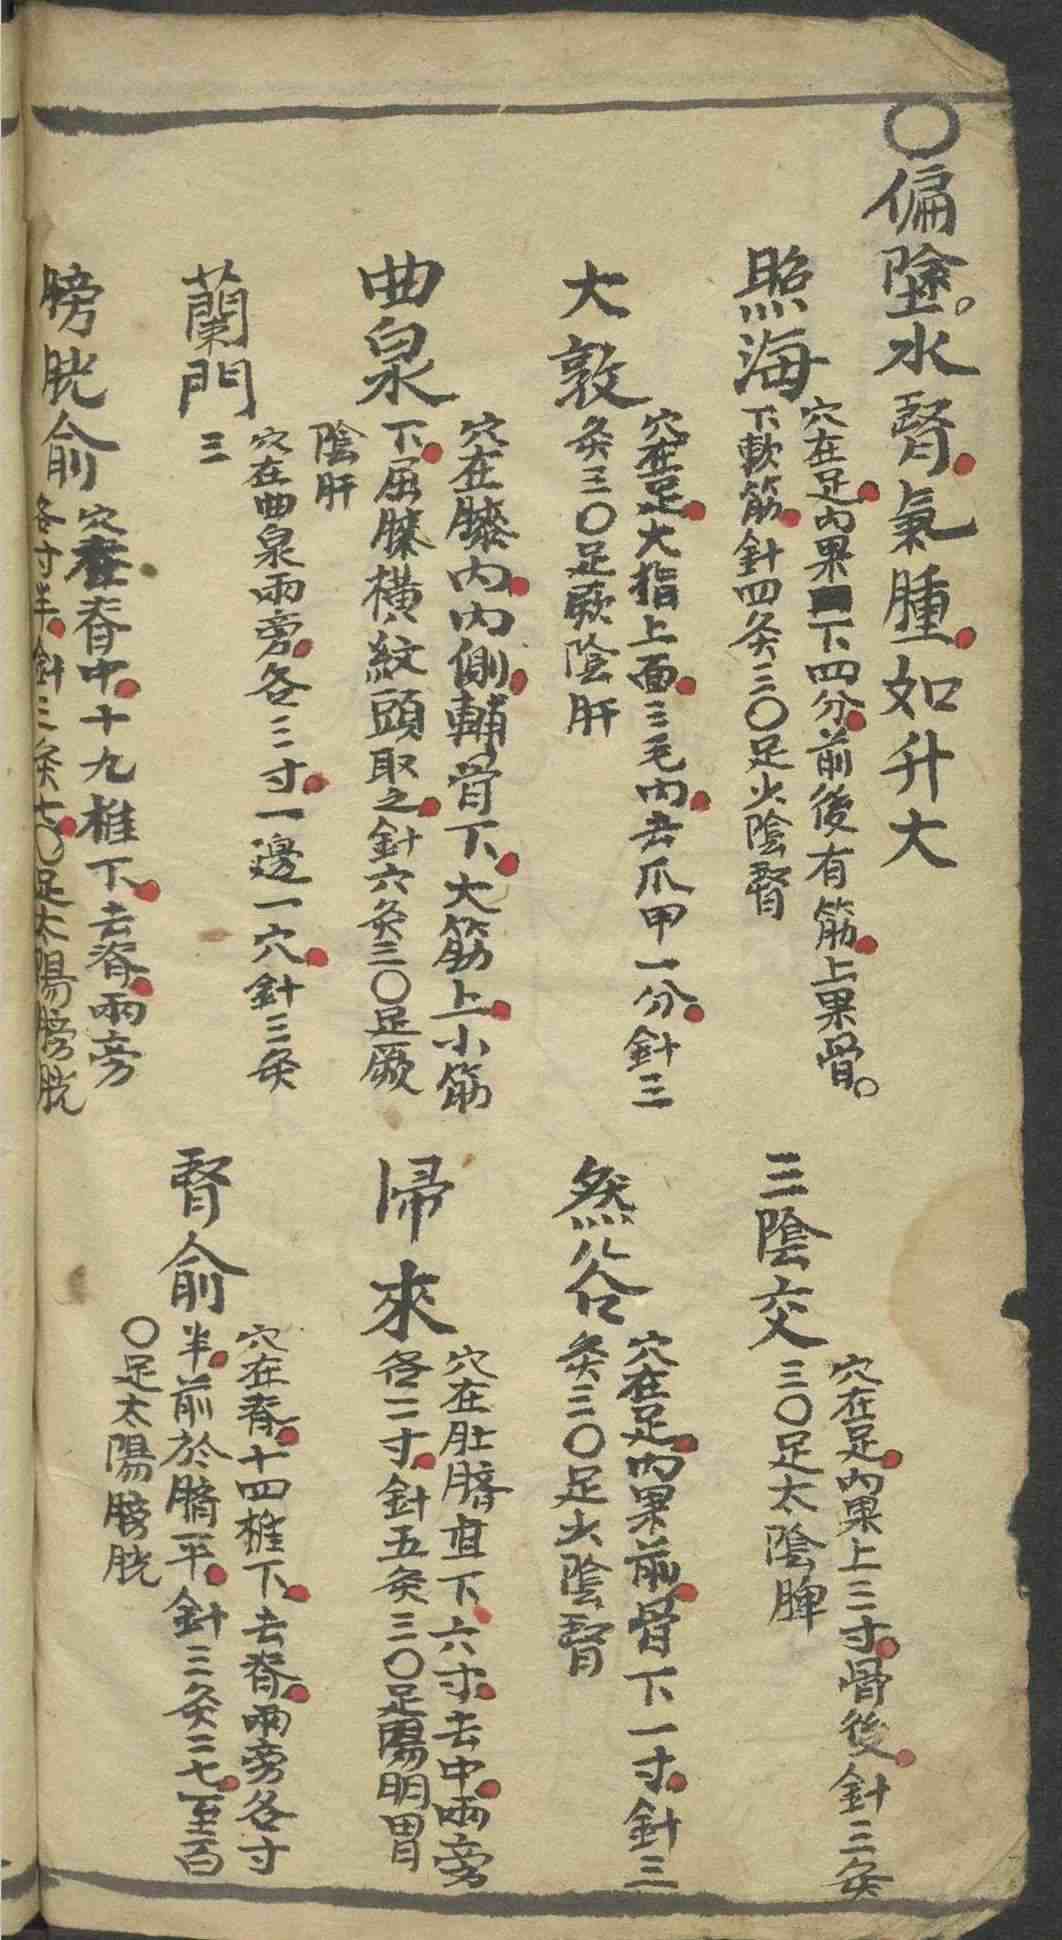 ○偏墜。水腎氣腫如升大
照海
穴在足內果下四分前後有筋上果骨。
下軟筋針四灸三○足少陰腎
三陰交
穴在足內果上三寸骨後針三灸
三○足太陰脾
大敦
穴在足大指上面三毛內去爪甲一分針三
灸三○足厥陰肝
然谷
穴在足內果前骨下一寸針三
灸三○足少陰腎
曲泉
穴在膝內內側輔骨下大筋上小筋
下屈膝橫紋頭取之針六灸三○足厥
陰肝
歸來
穴在肚臍直下六寸去中兩旁
各二寸針五灸三○足陽明胃
蘭門
穴在曲泉兩旁各三寸一邊一穴針三灸
三
腎俞
穴在脊十四椎下去脊兩旁各寸
半前於臍平針三灸二七至百
○足太陽膀胱
膀胱俞
穴在脊中十九椎下去脊兩旁
各寸半針三灸七○足太陽膀胱